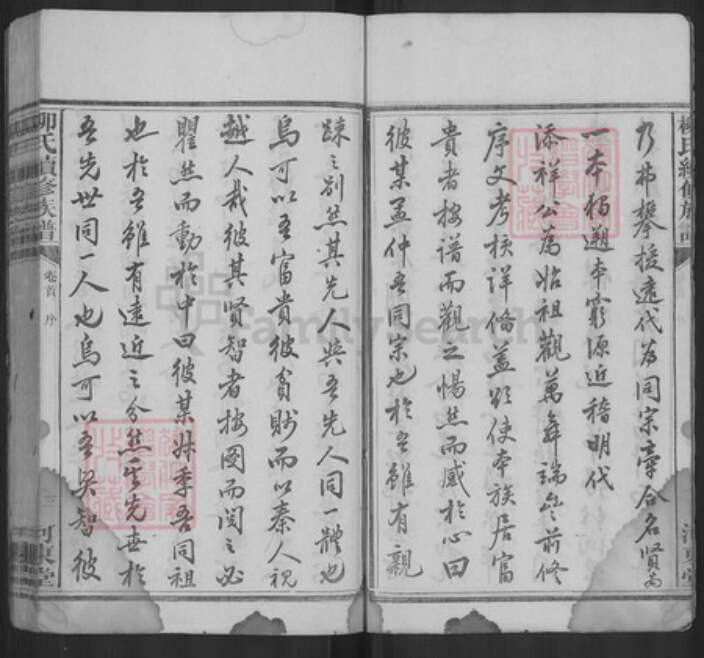 柳氏續修族譜
乃弗攀援遠代為同宗牽合名賢為
一本獨遡本窮源近稽明代
添祥公為始祖觀萬舞端公前修
序文考核詳備蓋欲使本族居富
貴者按谱而觀之惕然而感於心曰
彼某孟仲吾同宗也於吾雖有親
踈之别然其先人與吾先人同一體也
烏可以吾富貴彼貧賤而以秦人視
越人哉彼其賢智者按图而閱之必
瞿然而動於中曰彼某妹季吾同祖
也於吾雖有遠近之分然其先世於
吾先世同一人也烏可以吾賢智彼
柳氏續修族譜
卷首 序
三
河東堂
FamilySearch